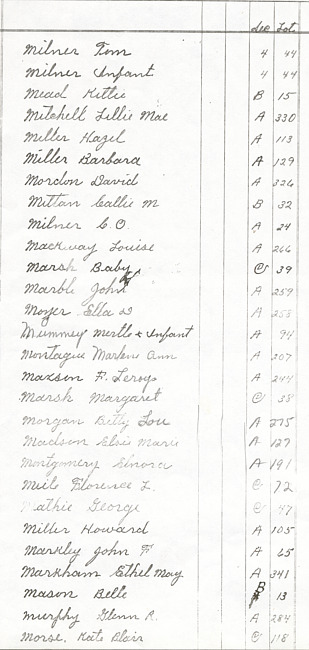 Sec Lot
Milner Tom 4 44
Milner Infant 4 44
Mead Kittie B 15
Mitchell Lillie Mae A 330
Miller Hazel A 113
Miller Barbara A 129
Mordon David A 326
Mittan Callie M B 32
Milner C.O. A 24
Mackway Louise A 266
Marsh Baby C 39
Marble John A 259
Moyer Ella A 258
Mummey Mertle & Infant A 94
Montague Marlene Ann A 207
Maxson F. Leroy A 244
Marsh Margaret C 38
Morgan Betty Lou A 275
Madson Elsie Marie A 127
Montgomery Elnora A 191
Florence L. C 72
Mathie George C 47
Miller Howard A 105
Markley John F A 65
Markham Ethel May A 341
Mason Belle B 13
Murphy Glenn R. A 284
Morse, Kate Blair C 118